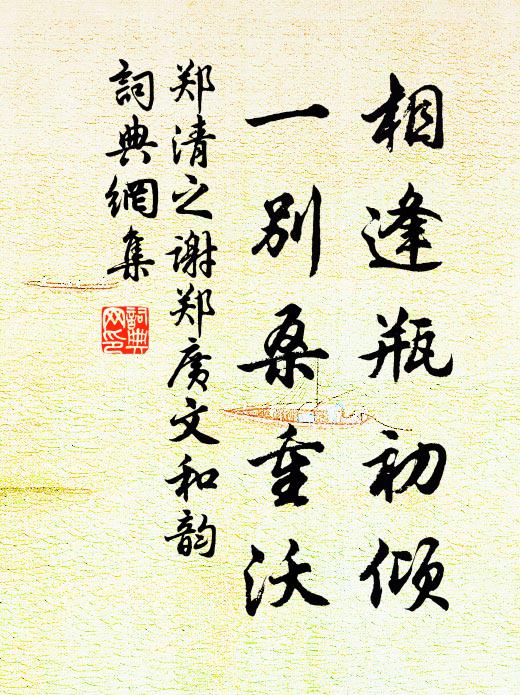 相逢瓶初倾
一别桑重沃
郑清之谢郑广文和韵
词典網集
詞典
网印